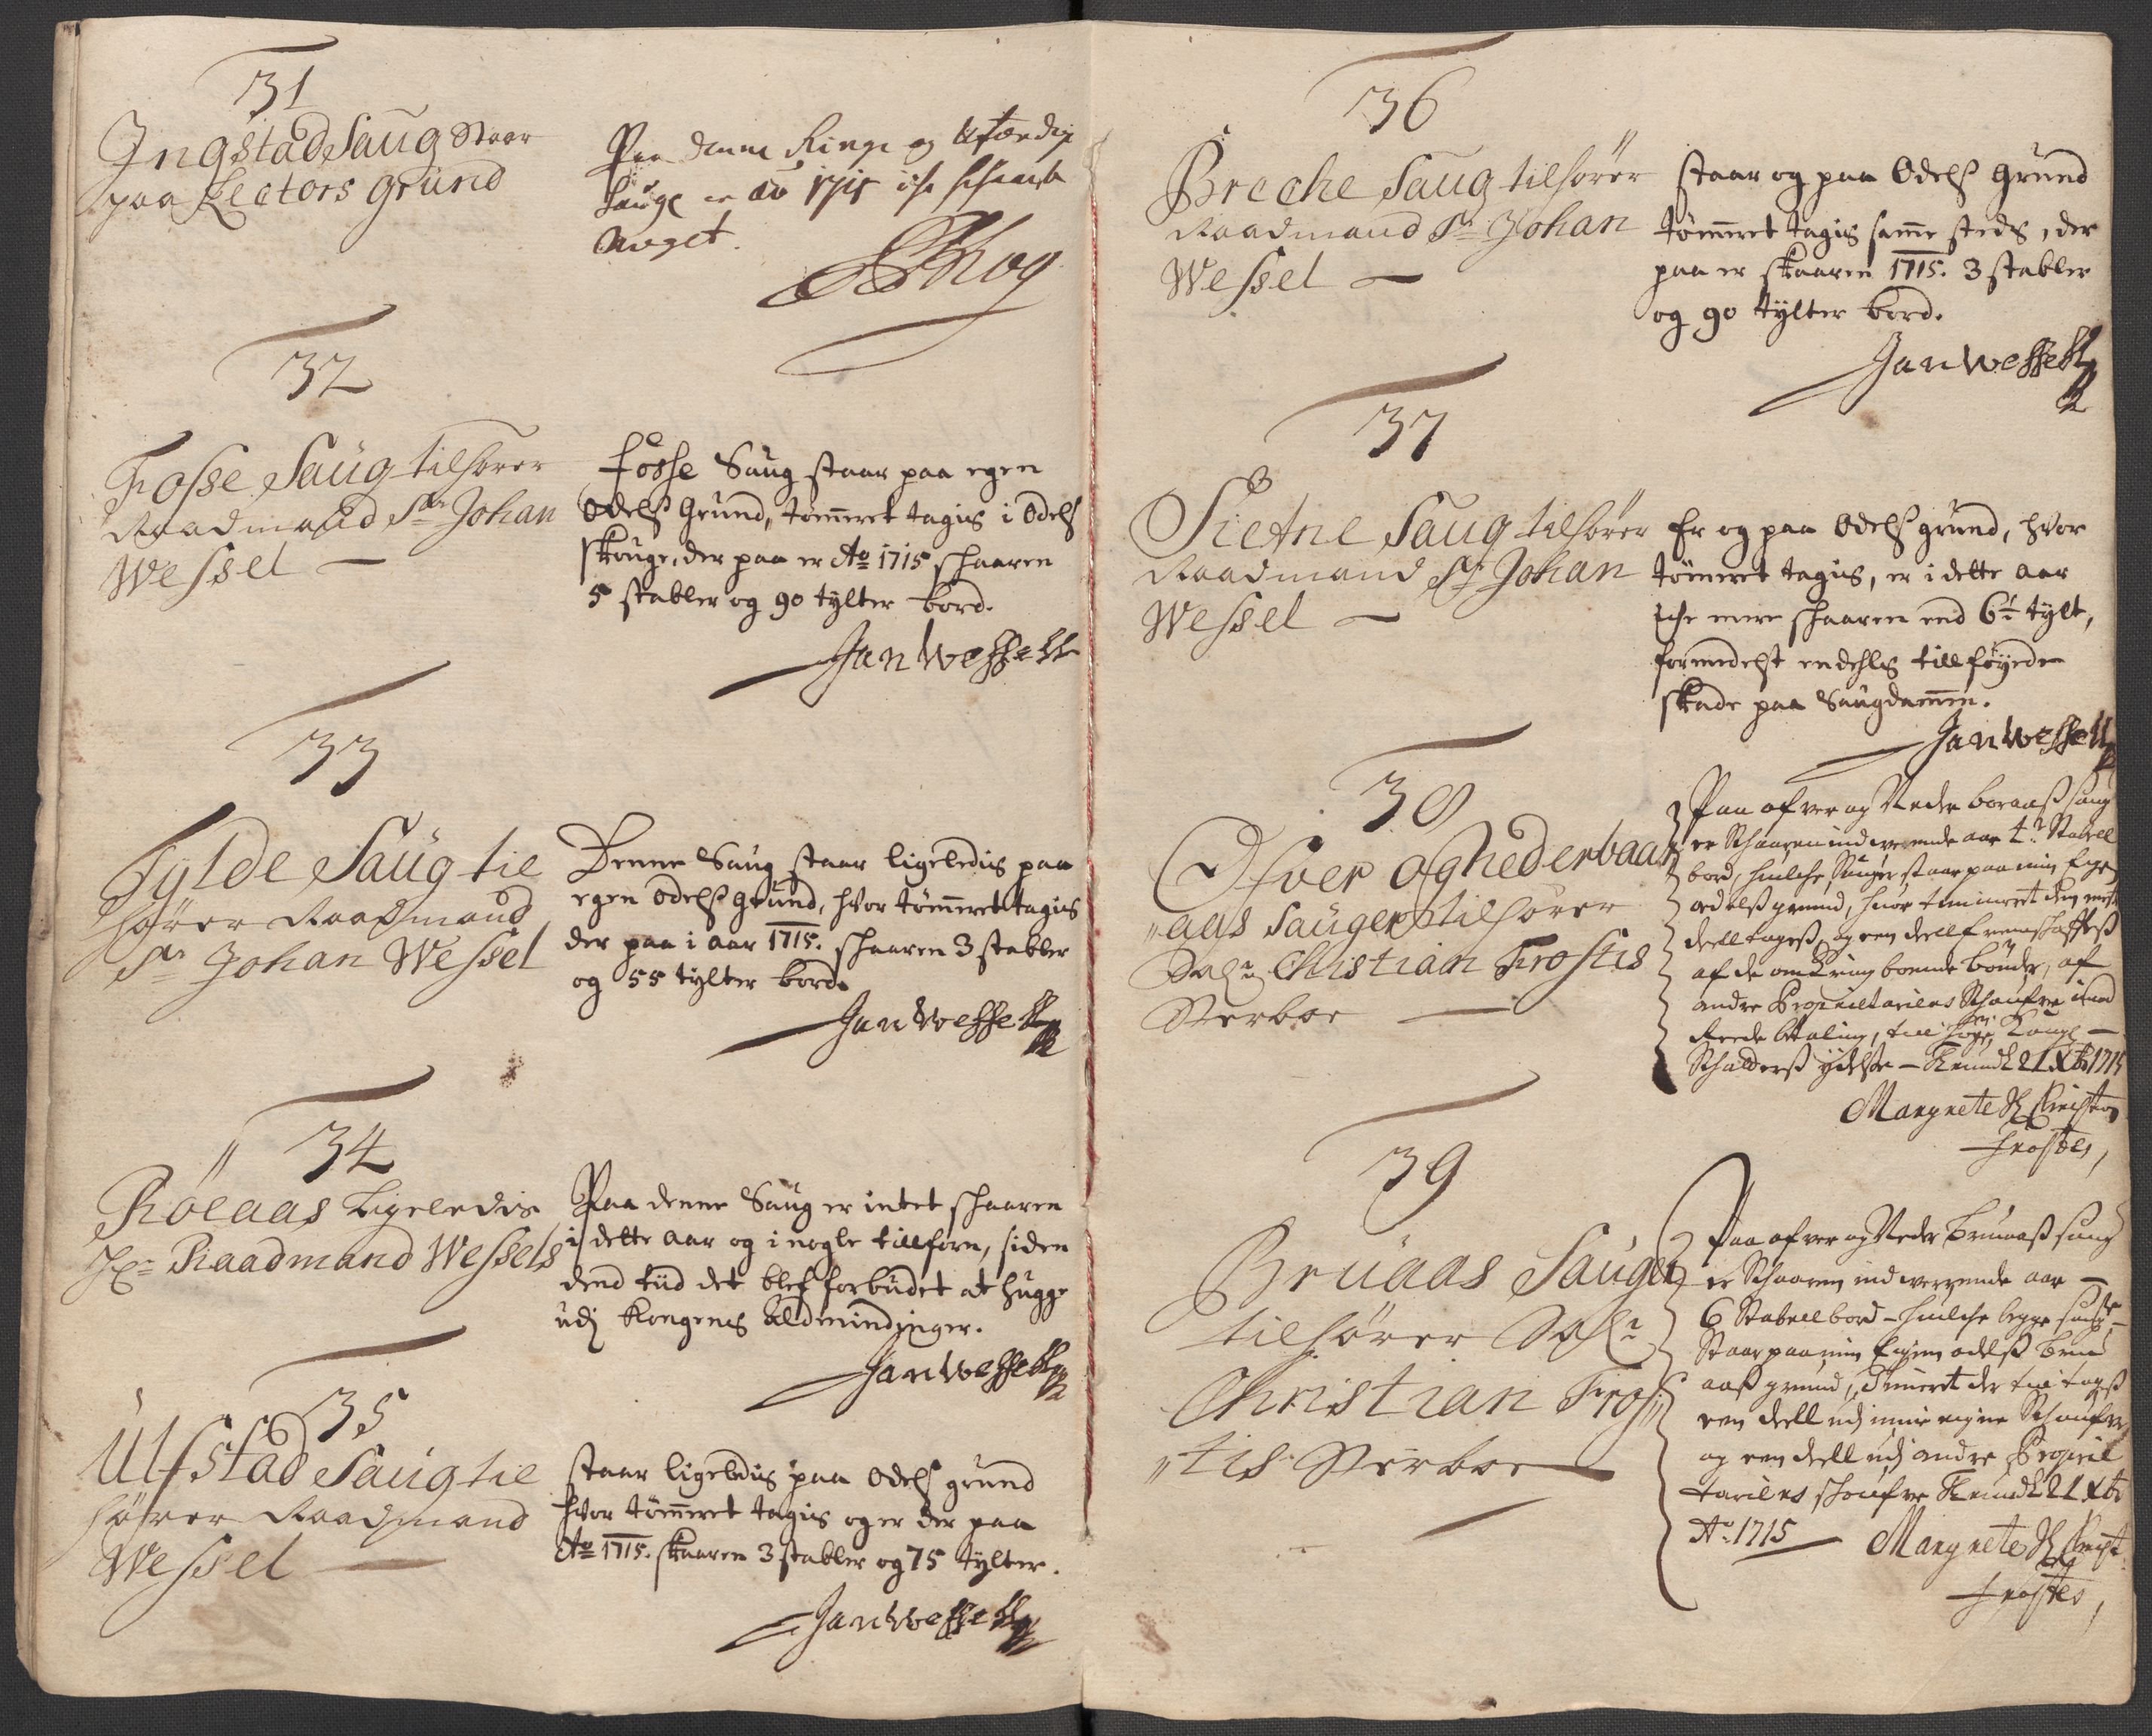 31
Ingstad Saug Staar
paa Lectors grund
Paa denne Ringe og Ufærdig
Sauge er ao 1715 iche schaaren
noget.
32
Fosse Saug tilhører
Raadmand Sr Johan
Wessel —
Fosse Saug staar paa egen
Odels Grund, tømmeret tagis i Odels
skouge, der paa er Ao 1715 schaaren
5 stabler og 90 tylter bord.
Jan Wessell
33
Fylde Saug til
hører Raadmand
Sr Johan Wessel
Denne Saug staar ligeledis paa
egen Odels grund, hvor tømmeret tagis
der paa i aar 1715. schaaren 3 stabler
og 55 tylter bord.
Jan Wessell
34
Rölaas Ligeledis
Hr Raadmand Wessels
Paa denne Saug er intet schaaren
i dette aar og i nogle tillforn, siden
dend tiid det blef forbudet at hugge
udj Kongens Aldmindinger.
Jan Wessell
35
Ulfstad Saug til
hører Raadmand
Wessel —
staar ligeledis paa Odels grund
hvor tømmeret tagis og er der paa
Ao 1715. skaaren 3 stabler og 75 tylter.
Jan Wessell
36
Breche Saug tilhører
Raadmand Sr Johan
Wessel —
staar og paa Odels Grund
tømmeret tagis samme steds, der
paa er skaaren 1715. 3 stabler
og 90 tylter bord.
Jan Wessell
37
Sietne Saug tilhører
Raadmand Sr Johan
Wessel —
Er og paa Odels grund, hvor
tømeret tagis, er i dette aar
iche mere schaaren end 6½ tylt,
formedelst endehls tillføyede
skade paa Saugdammen.
Jan Wessell
38
Ofver og Nederbaar
„aas Sauger tilhører
Sal: Christian Frostis
Sterboe —
Paa ofver og Neder boraass saug
er Schaaren indwerende aar t: Stabell
bord, huilche Sauger staar paa min Egen
odelss grund, huor timmeret den meste
deell tagess, og een deell fremschaffess
af de omkring boende bønder, af
andre Proprietariers Schoufve imod
Reede betaling, till høye Kongl —
Schatters ydelse — Trundh: 21 Xbr 1715
Margrete Sl Christen
Frostes,
39
Bruaas Sauger
tilhører Sal:
Christian Fros
„tis Sterboe
Paa ofver og Neder Bruaass saug
er Schaaren indwerrende aar —
6 Stabell bord — huilche begge saug —
Staar paa min Egen odelss Bru
aass grund, Timeret der till tagess
een deell udj mine eigne Schoufve
og een deell udj andre Propriel
tariers schoufve Trundh: 21 Xbr
Ao 1715 — Margrete Sl Christ
Frostes,